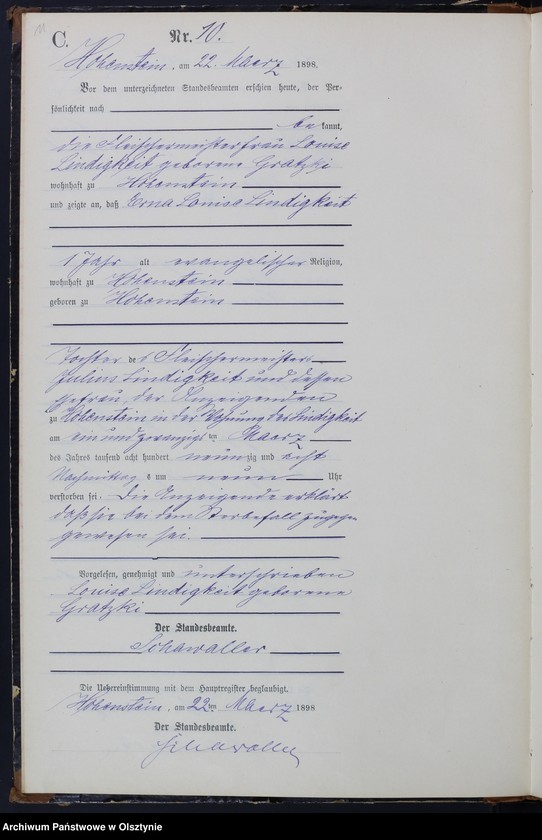 C.
Nr. 10.
Hohenstein, am 22. Maerz 1898.
Vor dem unterzeichneten Standesbeamten erschien heute, der Per-
sönlichkeit nach
bekannt,
die Fleischermeisterfrau Louise
Lindigkeit geborene Gratzki
wohnhaft zu Hohenstein
und zeigte an, daß Erna Louise Lindigkeit
1 Jahr alt evangelischer Religion,
wohnhaft zu Hohenstein
geboren zu Hohenstein
Tochter des Fleischermeisters
Julius Lindigkeit und dessen
Ehefrau, der Anzeigenden
zu Hohenstein in der Wohnung des Lindigkeit
am einundzwanzigsten Maerz
des Jahres tausend acht hundert neunzig und acht
Nachmittags um neun Uhr
verstorben sei. Die Anzeigende erklärt
daß sie bei dem Sterbefall zugegen
gewesen sei.
Vorgelesen, genehmigt und unterschrieben
Louise Lindigkeit geborene
Gratzki
Der Standesbeamte.
Schawaller
Die Uebereinstimmung mit dem Hauptregister beglaubigt.
Hohenstein, am 22ten Maerz 1898
Der Standesbeamte.
Schawaller
Archiwum Państwowe w Olsztynie